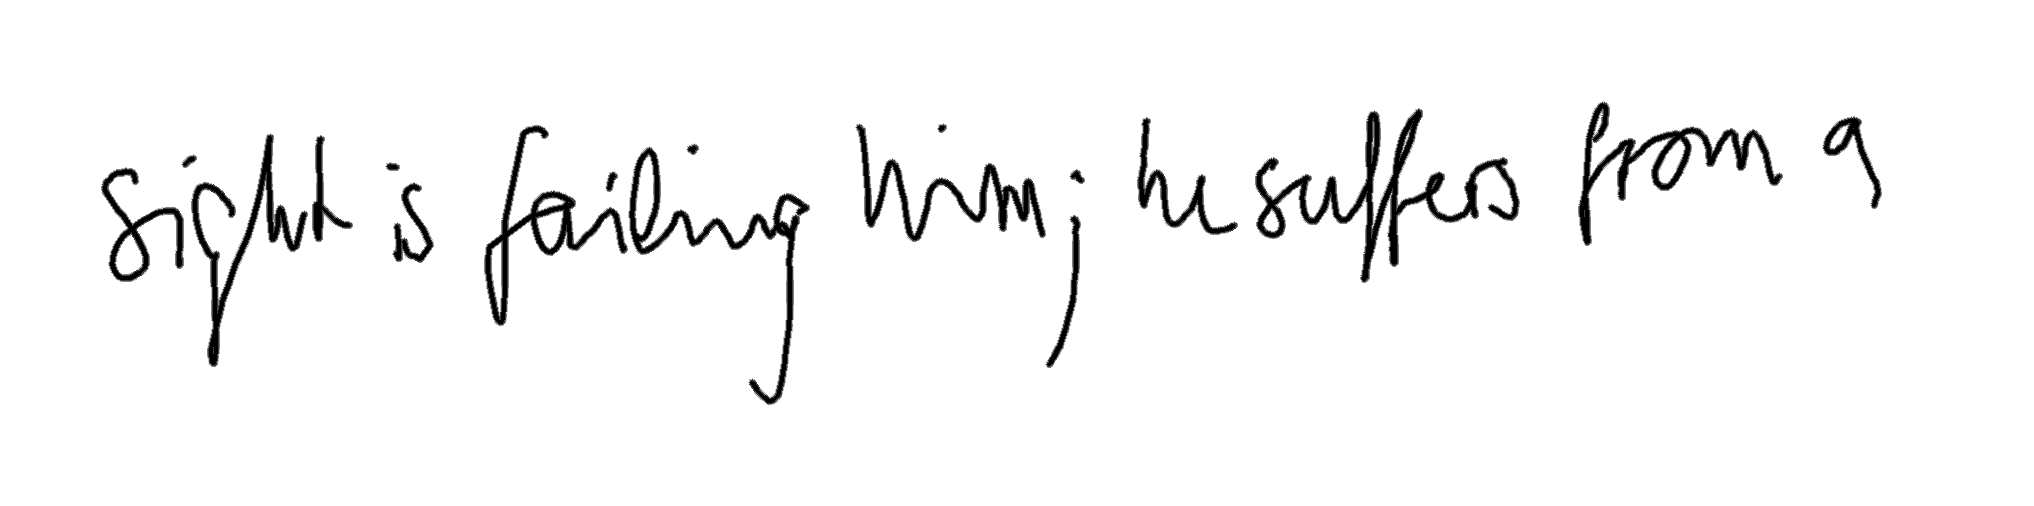 sight is failing him; he suffers from a